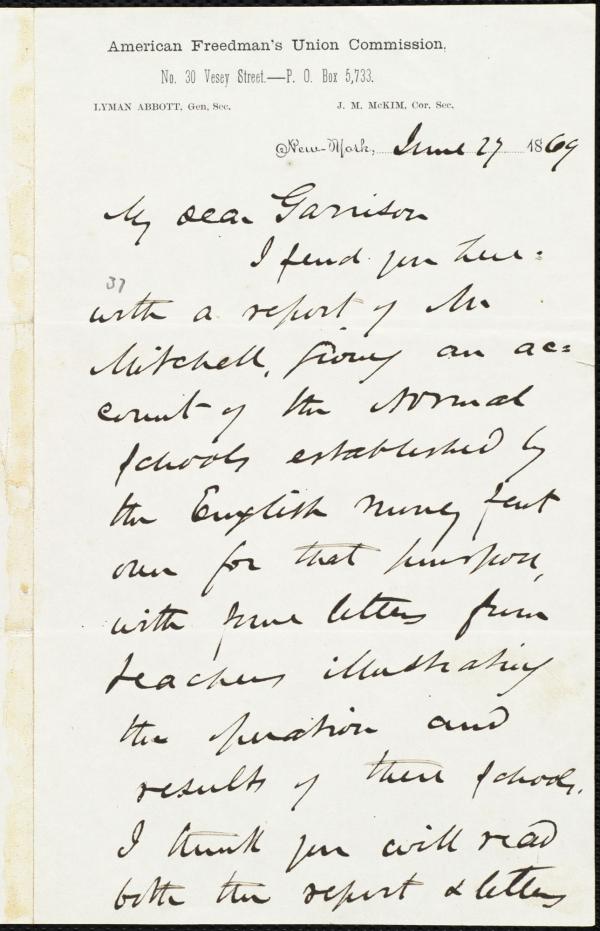 American Freedman's Union Commission,
No. 30 Vesey Street.—P. O. Box 5,733.
LYMAN ABBOTT, Gen, Sec. J. M. McKIM, Cor. Sec.
New-York, June 27 1869
My dear Garrison
I send you here=
37
with a report of Mr
Mitchell, giving an ac=
count of the Normal
Schools established by
the English money sent
over for that purpose,
with some letters from
teachers illustrating
the operation and
results of these schools.
I think you will read
both the report & letters